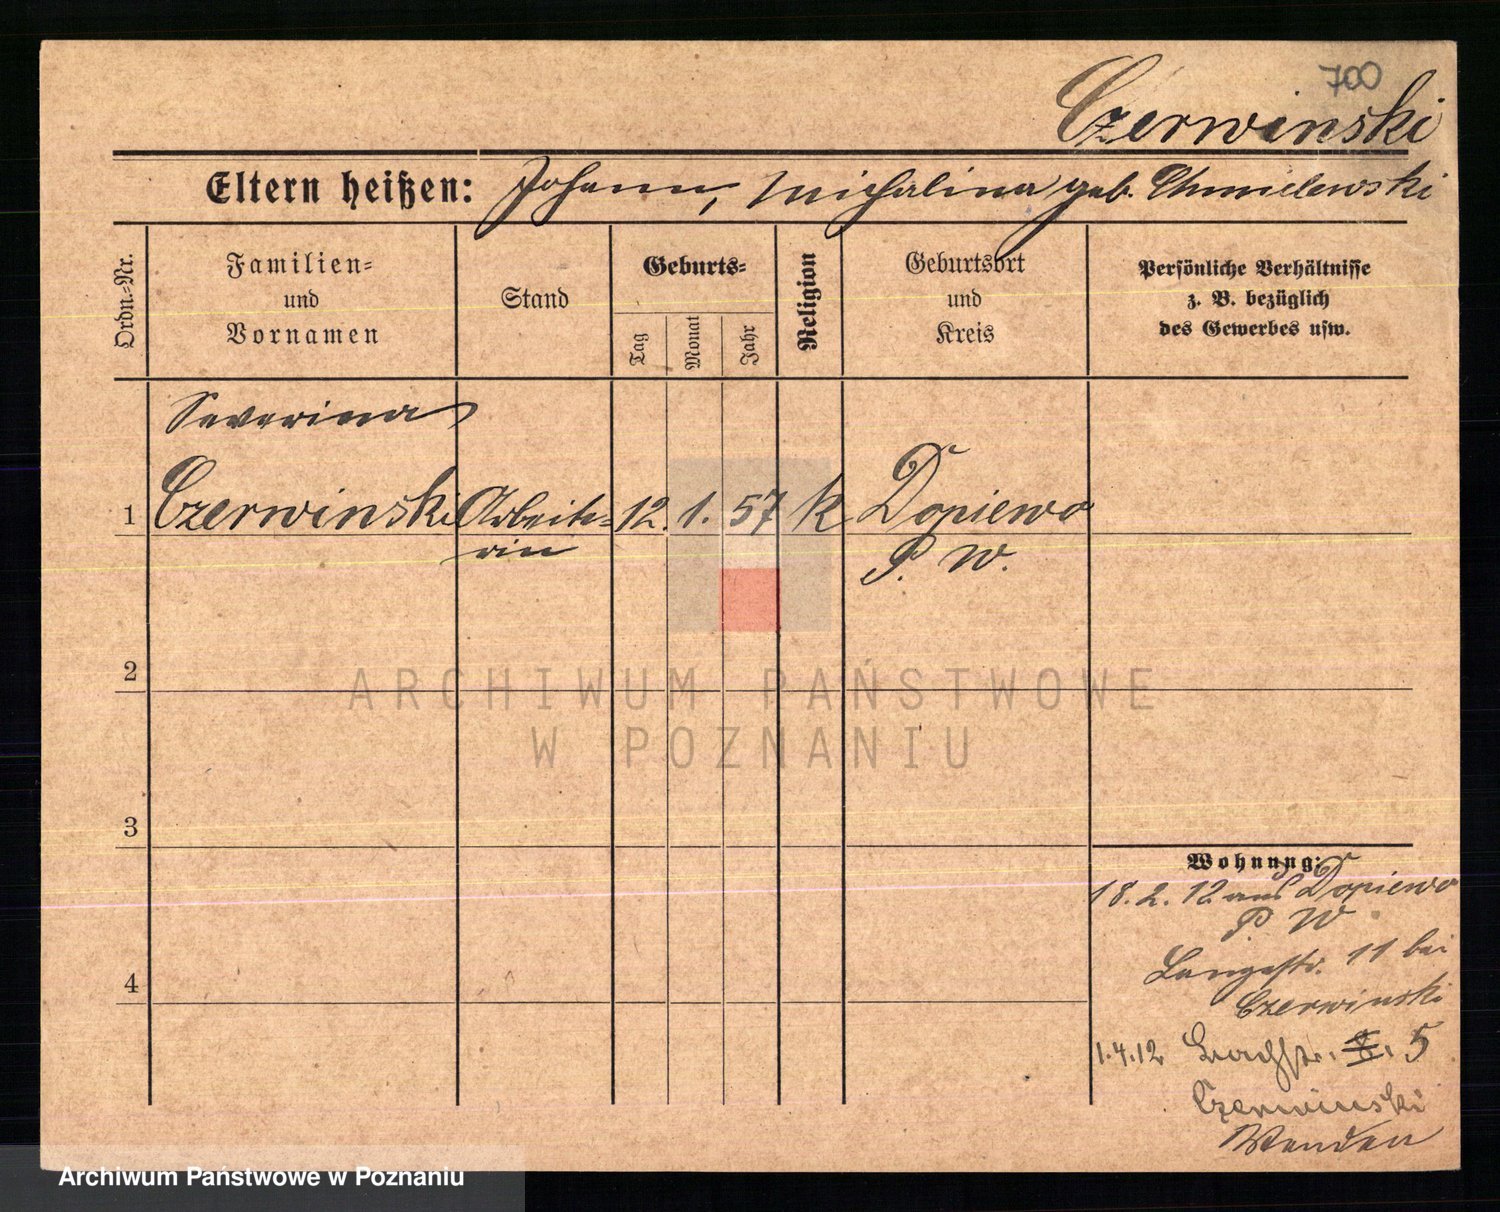 700
Czerwinski
Eltern heißen: Johann, Michalina geb. Chmielewski
Ordn.-Nr.
Familien-
und
Vornamen
Stand
Geburts-
Tag
Monat
Jahr
Religion
Geburtsort
und
Kreis
Persönliche Verhältnisse
z. B. bezüglich
des Gewerbes usw.
Severina
1 Czerwinski Arbeite- 12. 1. 57 k Dopiewo
rin P. W.
2
ARCHIWUM PAŃSTWOWE
W POZNANIU
3
Wohnung:
18. 2. 12 aus Dopiewo
P. W
Langestr. 11 bei
4
Czerwinski
1.4.12 5
Czerwinski
Wenden
Archiwum Państwowe w Poznaniu